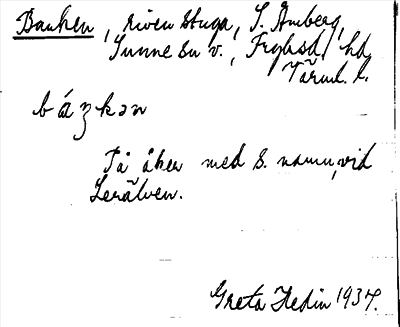 Banken, riven stuga, S. Amberg,
Sunne sn v., Fryksd. hd,
Värml. l.
bázkən
På åker med s. namn, vid
Lerälven.
Greta Hedin 1937.